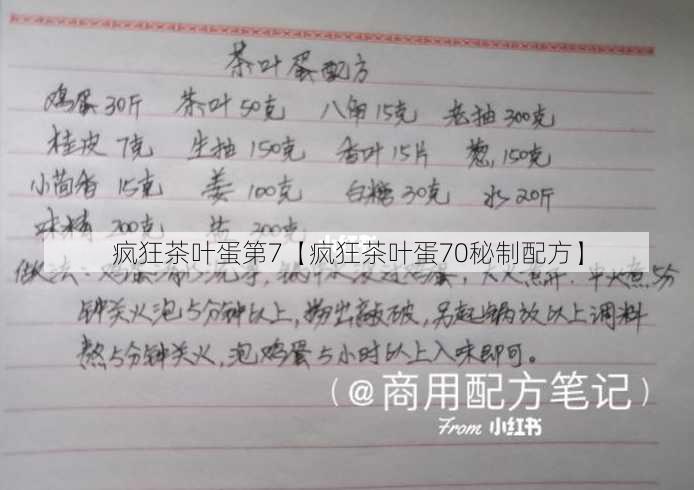 茶叶蛋配方
鸡蛋30斤 茶叶50克 八角15克 老抽300克
桂皮7克 生抽150克 香叶15片 葱,150克
小茴香15克 姜100克 白糖30克 水20斤
味精200克 盐200克
小红书
疯狂茶叶蛋第7【疯狂茶叶蛋70秘制配方】
做法:鸡蛋 洗净,锅中水没过鸡蛋,大火煮开.中火煮5分
钟关火泡5分钟以上,捞出敲破,另起锅放以上调料
熬5分钟关火,泡鸡蛋5小时以上入味即可。
(@商用配方笔记)
From 小红书